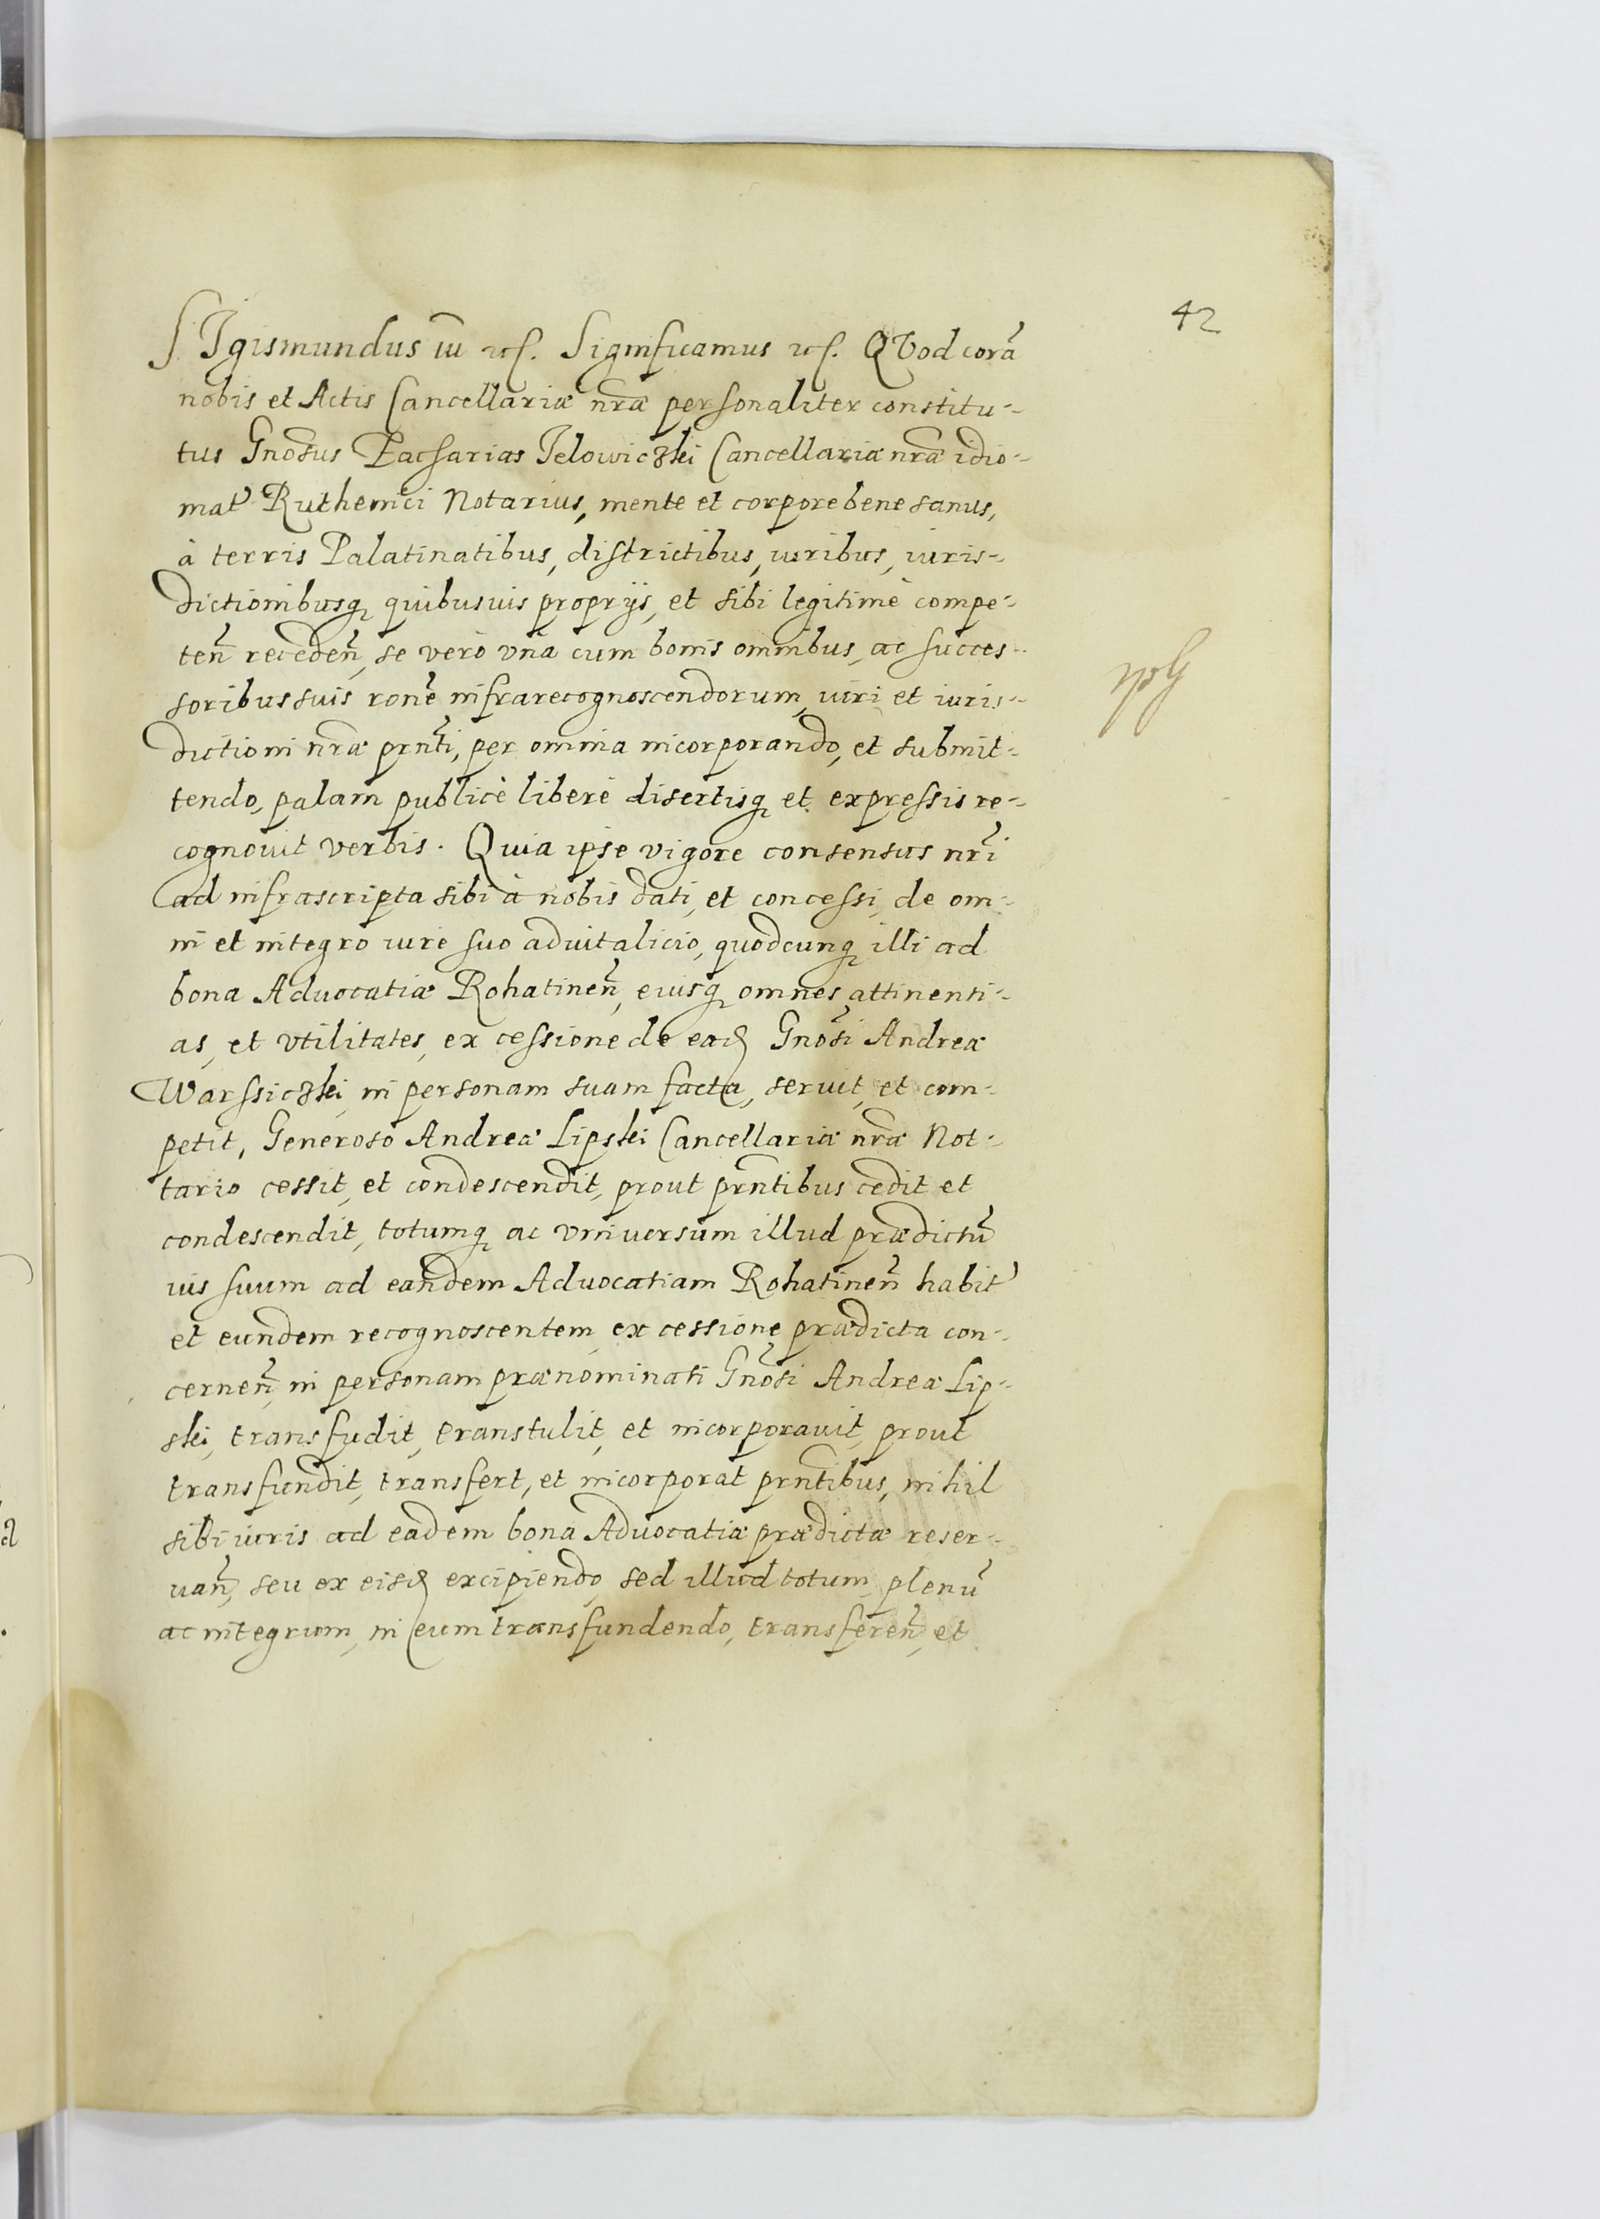 42
SIgismundus iii etc. Significamus etc. QVod corā
nobis et Actis Cancellariæ nr̄æ personaliter constitu-
tus Gnōsus Zacharias Ielowiczki Cancellariæ nr̄æ idio-
mat' Ruthenici Notarius, mente et corpore bene sanus,
à terris Palatinatibus, districtibus, iuribus, iuris-
dictionibusq; quibusuis proprijs, et sibi legitimè compe-
ten̄ receden̄, se verò vnà cum bonis omnibus, ac succes-
soribus suis ron̄e infrarecognoscendorum, iuri et iuris-
dictioni nr̄æ prn̄ti, per omnia incorporando, et submit-
tendo, palam publicè liberè disertisq; et expressis re-
cognouit verbis. Quia ipse vigore consensus nr̄i
ad infrascripta sibi à nobis dati, et concessi, de om-
ni et integro iure suo aduitalicio, quodcunq; illi ad
bona Aduocatiæ Rohatinen̄, eiusq; omnes attinenti-
as, et vtilitates, ex cessione de ead; Gnōsi Andreæ
Warssiczki, in personam suam facta, seruit, et com-
petit, Generoso Andreæ Lipski Cancellariæ nr̄æ Not-
tario cessit, et condescendit, prout prn̄tibus cedit et
condescendit, totumq; ac vniuersum illud prædictū
ius suum ad eandem Aduocatiam Rohatinen̄ habit'
et eundem recognoscentem, ex cessione prædicta con-
cernen̄, in personam prænominati Gnōsi Andreæ Lip-
ski, transfudit, transtulit, et incorporauit, prout
transfundit, transfert, et incorporat prn̄tibus, nihil
sibi iuris ad eadem bona Aduocatiæ prædictæ reser-
uan̄, seu ex eisd; excipiendo, sed illud totum, plenū
ac integrum, in eum transfundendo, transferen̄, et